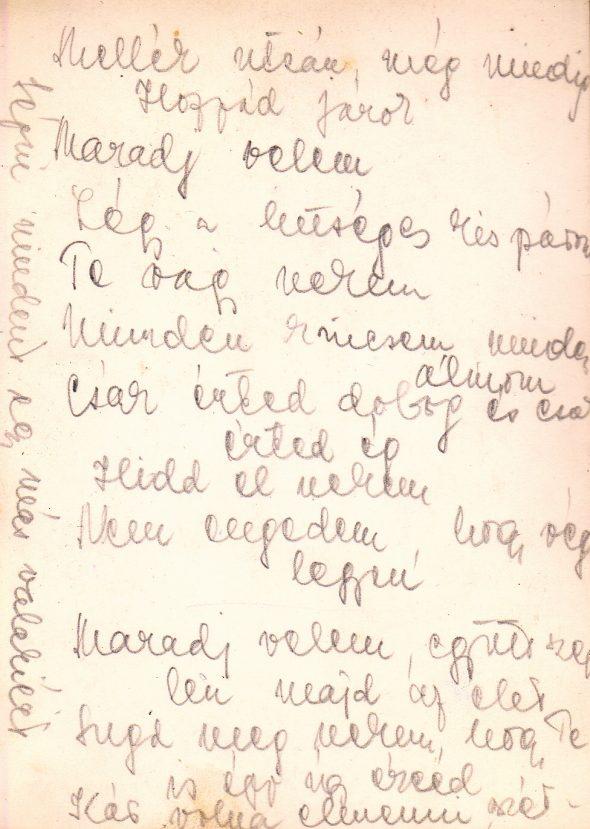 Mellér utcán, még mindig
Hozzád járok
Maradj velem
Lég a hűséges kis párom
Te vagy nekem
Minden kincsem minden
álmom
Csak érted dobog és csak
érted ég
Hidd el nekem
Nem engedem, hogy vége
legyen
Maradj velem, együtt szép
len majd az élet
Sugd meg nekem, hogy Te
is égő érzéd
Kár volna elmenni
mindent más valakiért